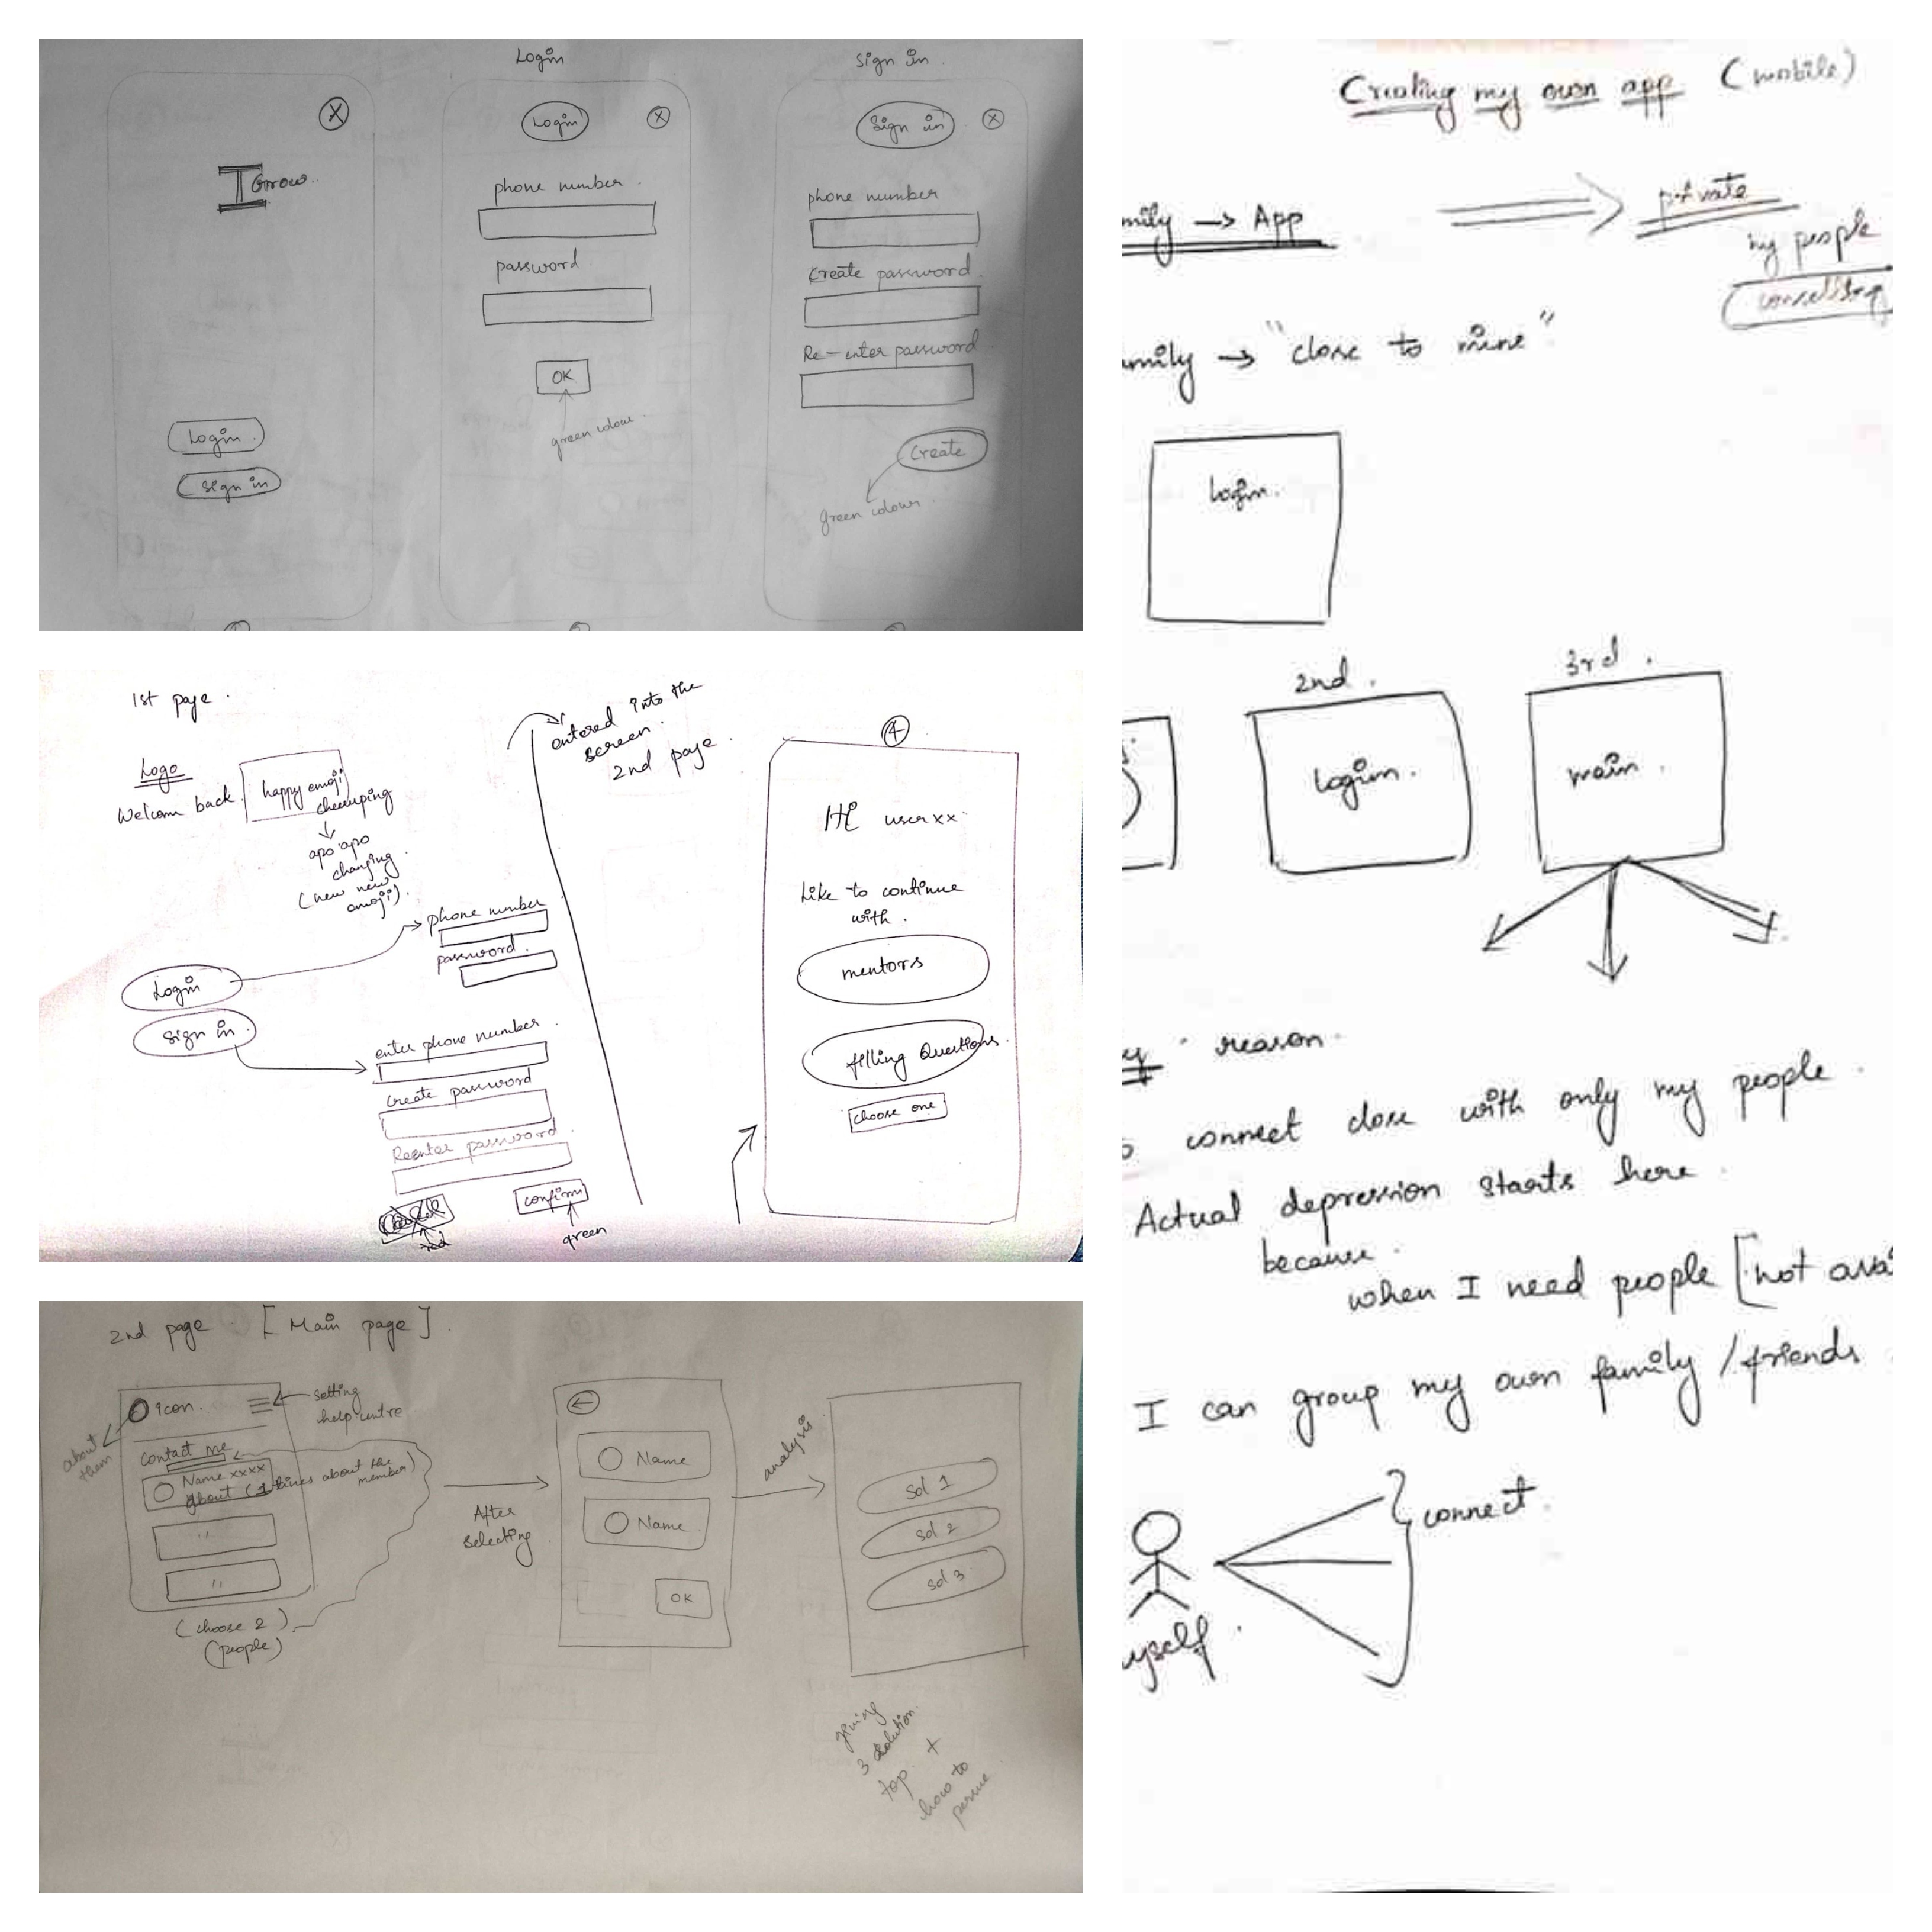 Login
Sign in.
X
Login
X
Sign in
X
I Grow..
phone number.
password
OK
green colour.
phone number
Create password.
Re-enter password
Create
green colour.
Login.
Sign in
1st page.
Logo
Welcome back.
happy emoji
cheeruping
apo apo
changing.
(new new
emoji).
Login
Sign in.
phone number
password.
enter phone number.
Create password
Reenter password.
confirm
red
green
entered into the
screen.
2nd page.
4
Hi user xx.
Like to continue
with.
mentors
filling Questions.
choose one
2nd page [Main page].
icon.
setting
help centre
about
them
contact me
Name xxxx
About (1 lines about the
member)
"
"
(choose 2)
(people)
After
selecting
Name
Name
OK
analysis
sol 1
sol 2
sol 3
giving
3 solution
top +
how to
Creating my own app (mobile)
mily → App
private
my people
amily → "close to mine"
login.
2nd.
3rd.
login.
main.
reason.
connect close with only my people.
Actual depression starts here.
because.
when I need people [not ava
I can group my own family / friends
connect.
yself.